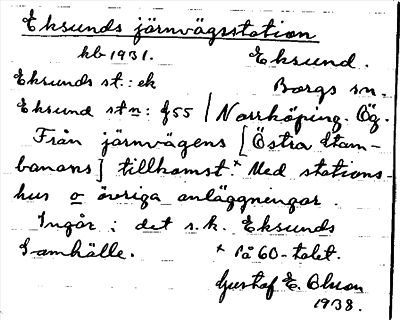 Eksunds järnvägsstation
kb 1931. Eksund.
Eksunds st.: ek Borgs sn.
Eksund stn: f55 / Norrköping. Ög.
Från järnvägens [Östra Stam-
banans] tillkomst.x Med stations-
hus o övriga anläggningar.
Ingår i det s.k. Eksunds
Samhälle. x På 60-talet.
Gustaf E. Olson
1938.